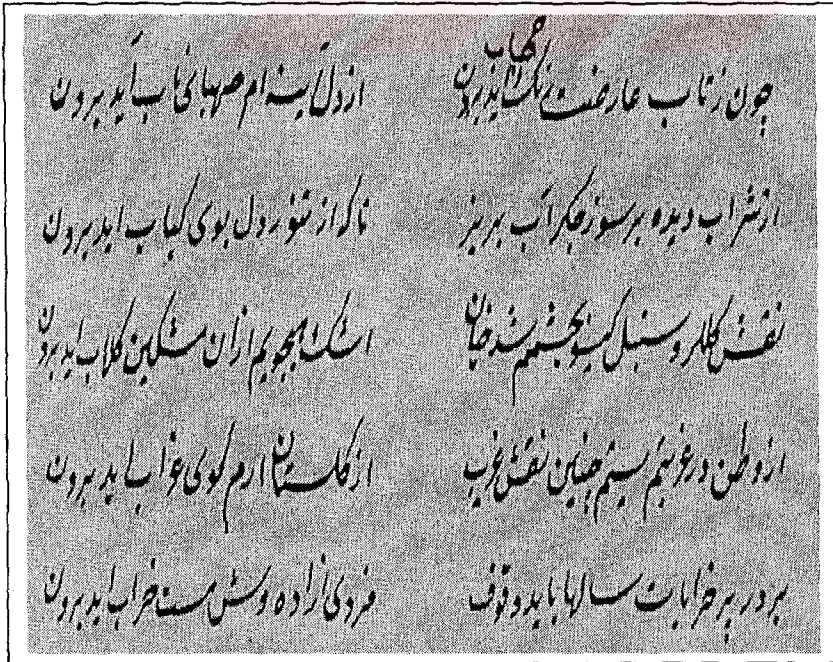 چون ز تاب عارضت رنگ شهاب آید برون از دل آینه ام صهبای ناب آید برون
از شراب دیده بر سوز جگر آب بریز تا که از تنور دل بوی کباب آید برون
نقش گلرو سنبل گیسو بچشمم شد اشک همچویم ازان مشکین گلاب آید برون
از وطن در غربتم بستم چنین نقش غریب از گلستان ارم گوی غراب آید برون
بر در پیر خرابات سالها باید وقوف فردی آزاده وش مست خراب آید برون